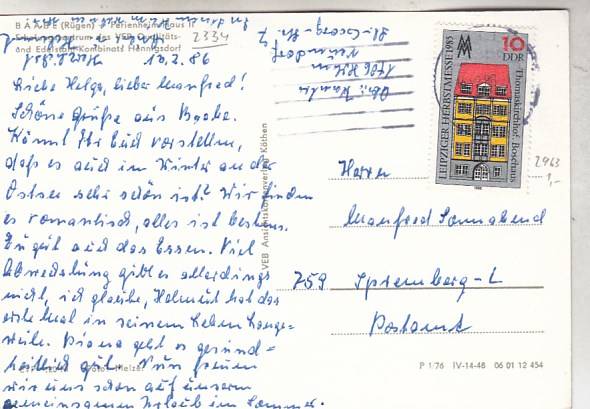 BAABE (Rügen) - Ferienheim Haus II
Erholungszentrum des VEB Qualitäts-
und Edelstahl-Kombinats Hennigsdorf
2334
10.2.86
Liebe Helga, lieber Manfred!
Schöne Grüße aus Baabe.
Könnt Ihr Euch vorstellen,
daß es auch im Winter an der
Ostsee sehr schön ist? Wir finden
es romantisch, alles ist bestens.
Zu gut auch das Essen. Viel
Abwechslung gibt es allerdings
nicht, ich glaube, Helmut hat das
erste Mal in seinem Leben Lange-
weile. Diana geht es gesund-
heitlich gut. Nun freuen
wir uns schon auf unseren
gemeinsamen Urlaub im Sommer.
Abs.:
VEB Ansichtskartenverlag Köthen
LEIPZIGER HERBSTMESSE 1985
MM
10
DDR
Thomaskirchhof, Bosehaus
2963
1,-
Herrn
Manfred Sonnabend
759 Spremberg-L
Postamt
P 1/76 IV-14-48 06 01 12 454